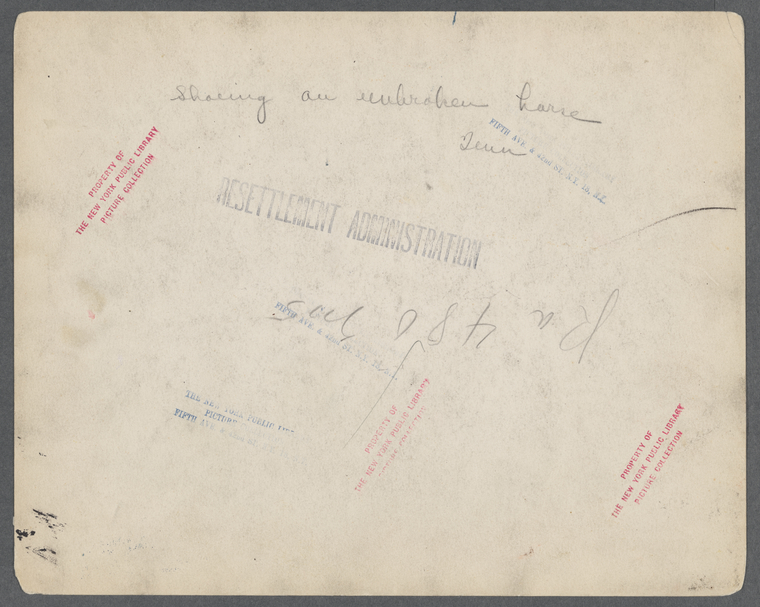 Shoeing an unbroken horse
Tenn
FIFTH AVE. & 42nd ST., N.Y. 18, N.Y.
PROPERTY OF
THE NEW YORK PUBLIC LIBRARY
PICTURE COLLECTION
RESETTLEMENT ADMINISTRATION
FIFTH AVE. & 42nd ST.
THE NEW YORK PUBLIC
FIFTH AVE
PROPERTY OF
THE NEW YORK PUBLIC LIBRARY
PICTURE COLLECTION
PROPERTY OF
THE NEW YORK PUBLIC LIBRARY
PICTURE COLLECTION